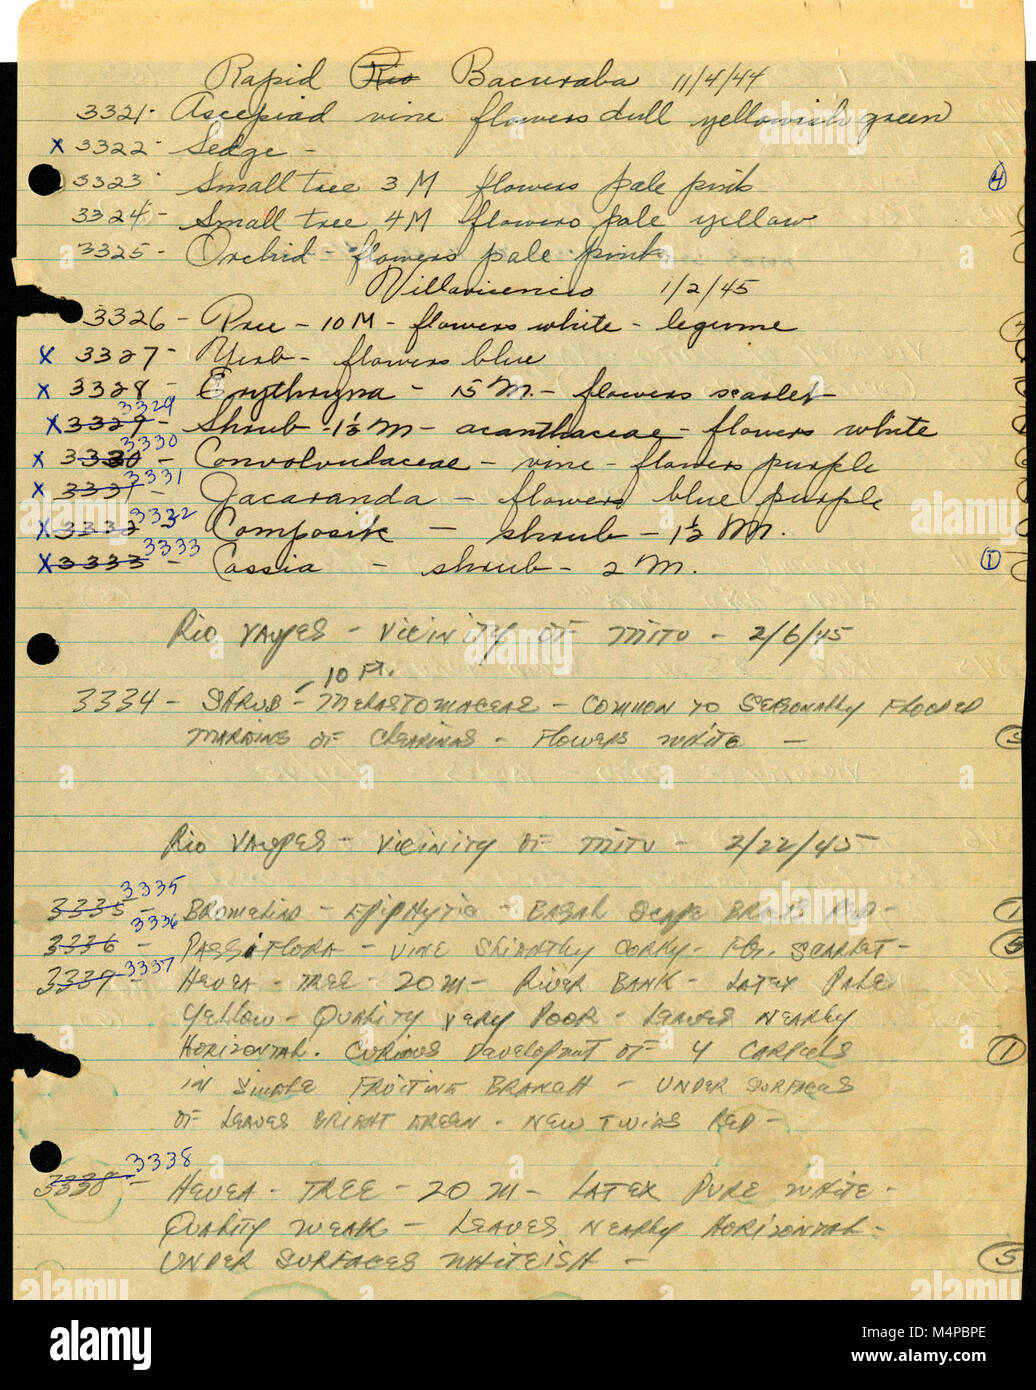 Rapid Rio Bacuraba 11/4/44
3321- Ascepiad vine flowers dull yellowish green
x 3322- Sedge -
3323- Small tree 3 M flowers pale pink 4
3324- Small tree 4M flowers pale yellow
3325- Orchid - flowers pale pink
Villavicencio 1/2/45
3326- Tree - 10 M - flowers white - legume
x 3327- Herb - flowers blue
x 3328- Erythryna - 15 M. - flowers scarlet
3329
x 3329- Shrub - 1½ M - acanthaceae - flowers white
3330
x 3330- Convolvulaceae - vine - flowers purple
3331
x 3331- Jacaranda - flowers blue purple
3332
x 3332- Composite - shrub - 1½ M.
3333
x 3333- Cassia - shrub - 2 M. 1
Rio Vaupes - Vicinity of Mitu - 2/6/45
10 Ft.
3334- Shrub - Melastomaceae - Common to seasonally flooded
margins of clearings - Flowers white - 5
Rio Vaupes - Vicinity of Mitu - 2/22/45
3335
3335- Bromeliad - Epiphytic - Basal scape bracts red - 1
3336
3336- Passiflora - vine slightly corky - Flr. scarlet - 5
3337
3339- Hevea - Tree - 20 M - River bank - Latex pale
yellow - Quality very poor - Leaves nearly
horizontal. Curious developmt of 4 carpels 1
in single fruiting branch - Under surfaces
of leaves bright green - New twigs red -
3338
3338- Hevea - Tree - 20 M - Latex pure white -
Quality weak - Leaves nearly horizontal -
under surfaces whiteish - 5
alamy
Image ID: M4PBPE
www.alamy.com